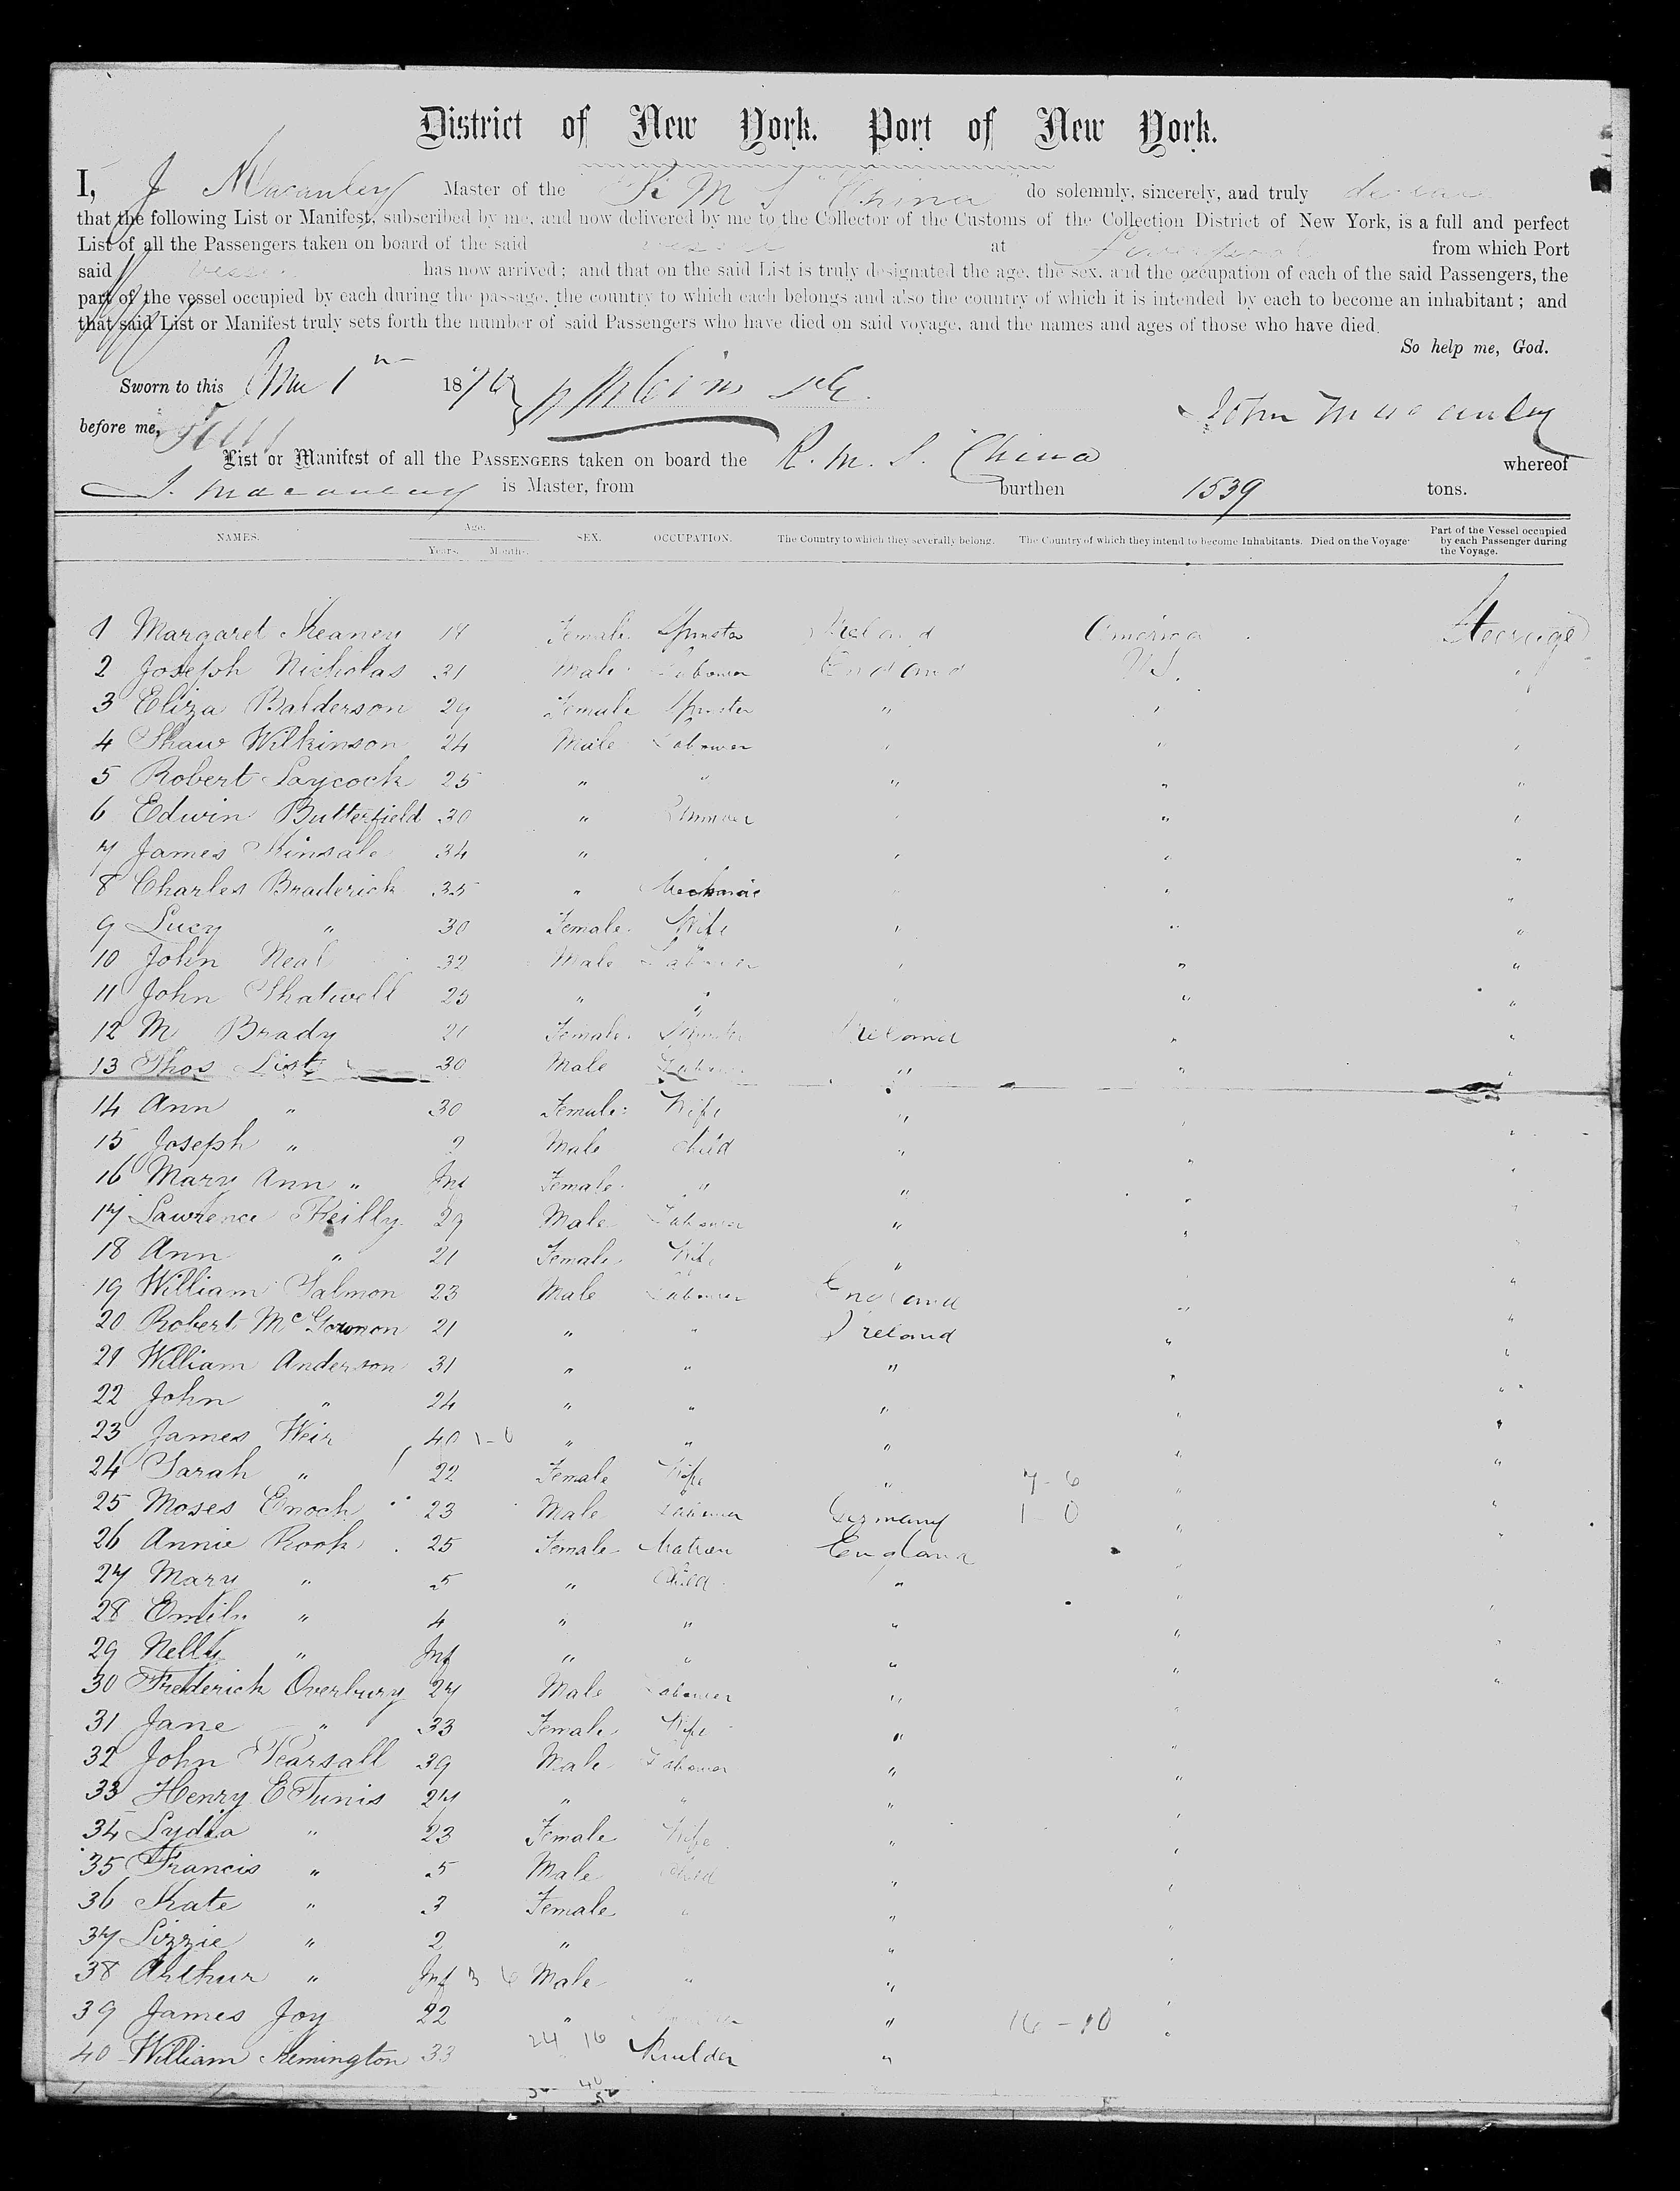 District of New York. Port of New York.
I, J Macauley Master of the R M S "China" do solemnly, sincerely, and truly declare
that the following List or Manifest, subscribed by me, and now delivered by me to the Collector of the Customs of the Collection District of New York, is a full and perfect
List of all the Passengers taken on board of the said vessel at Liverpool from which Port
said vessel has now arrived; and that on the said List is truly designated the age, the sex, and the occupation of each of the said Passengers, the
part of the vessel occupied by each during the passage, the country to which each belongs and also the country of which it is intended by each to become an inhabitant; and
that said List or Manifest truly sets forth the number of said Passengers who have died on said voyage, and the names and ages of those who have died.
So help me, God.
Sworn to this 187
John Macauley
before me,
List or Manifest of all the PASSENGERS taken on board the R. M. S. China whereof
J. Macauley is Master, from burthen 1539 tons.
NAMES. Age. Years. Months. SEX. OCCUPATION. The Country to which they severally belong. The Country of which they intend to become Inhabitants. Died on the Voyage. Part of the Vessel occupied by each Passenger during the Voyage.
1 Margaret Keaney Female Spinster Ireland America Steerage
2 Joseph Nicholas 21 Male Labourer England U.S. "
3 Eliza Balderson 29 Female Spinster " " "
4 Shaw Wilkinson 24 Male Labourer " " "
5 Robert Laycock 25 " " " " "
6 Edwin Butterfield 30 " " " "
7 James Kinsale 34 " " " " "
8 Charles Braderick 35 " Mechanic " "
9 Lucy " 30 Female Wife " " "
10 John Neal 32 Male Labourer " " "
11 John Shatwell 25 " " " " "
12 M Brady 21 Female Spinster Ireland " "
13 Thos List 30 Male Labourer " " "
14 Ann " 30 Female Wife " " "
15 Joseph " 2 Male Child " " "
16 Mary Ann " Inf Female " " " "
17 Lawrence Reilly 29 Male Labourer " " "
18 Ann " 21 Female Wife "
19 William Salmon 23 Male Labourer England " "
20 Robert McGownon 21 " " Ireland " "
21 William Anderson 31 " " " " "
22 John " 24 " " " " "
23 James Weir 40 " " " " "
24 Sarah " 22 Female Wife " 7-6 " "
25 Moses Enoch 23 Male Labourer Germany 1 0 " "
26 Annie Rook 25 Female Matron England "
27 Mary " 5 " Child "
28 Emily " 4 " " " " "
29 Nelly " Inf " " " " "
30 Frederick Overbury 27 Male Labourer " " "
31 Jane " 33 Female Wife " "
32 John Pearsall 39 Male Labourer " "
33 Henry E Tunis 27 " " " "
34 Lydia " 23 Female Wife " "
35 Francis " 5 Male Child " "
36 Kate " 3 Female " " "
37 Lizzie " 2 " " "
38 Arthur " Inf Male " " "
39 James Joy 22 " " 16-10 "
24 16
40 William Remington 33 Builder "